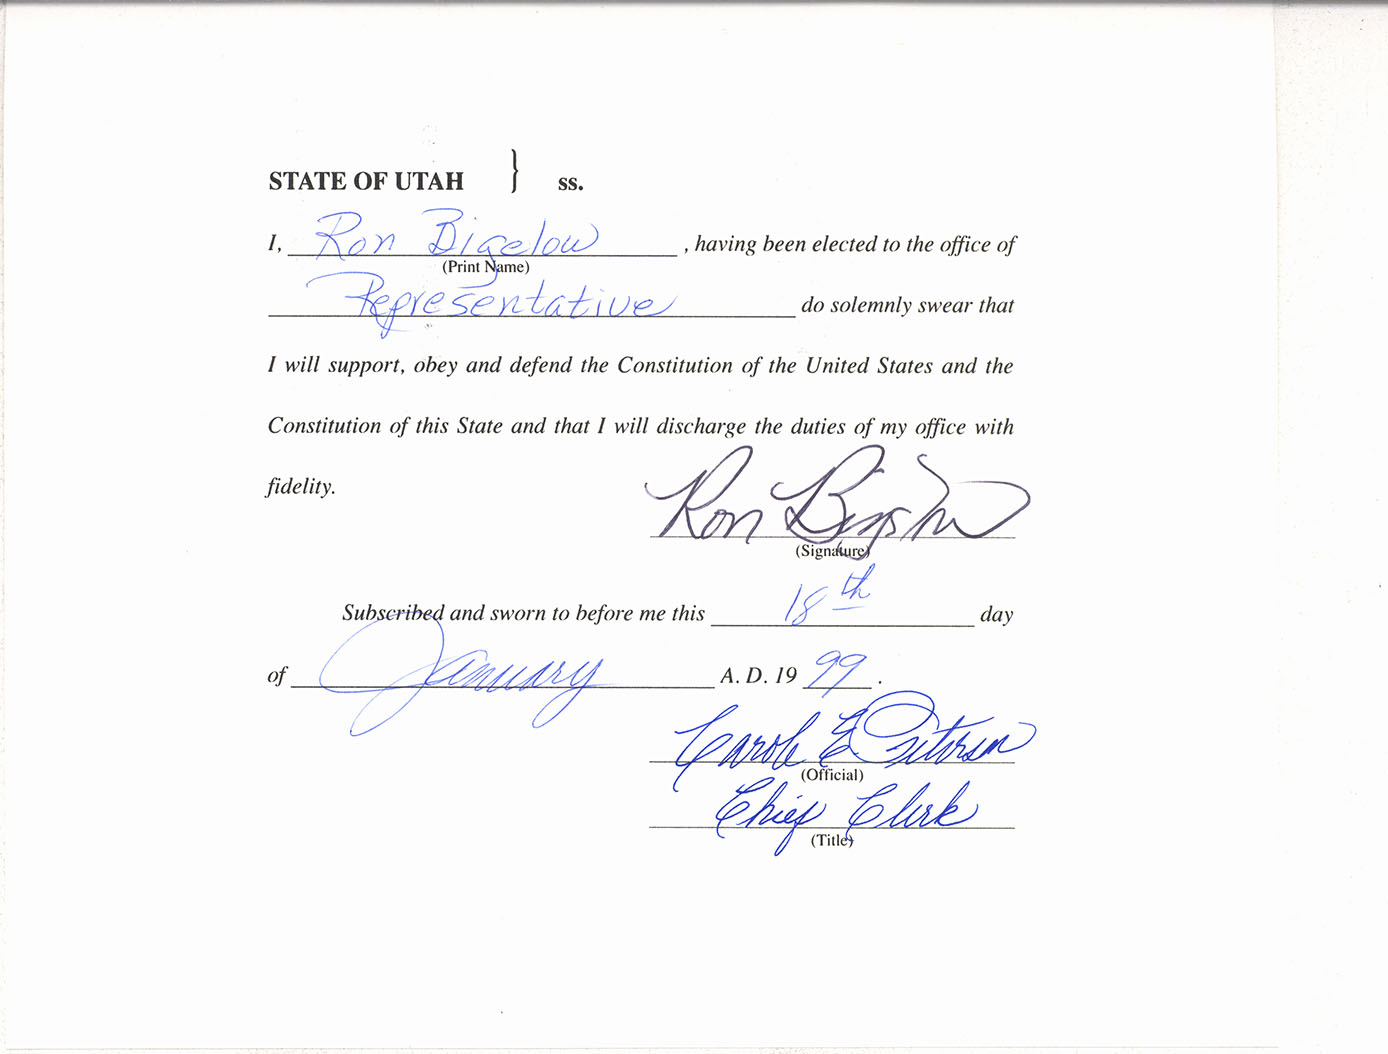 STATE OF UTAH } ss.
I, Ron Bigelow , having been elected to the office of
(Print Name)
Representative do solemnly swear that
I will support, obey and defend the Constitution of the United States and the
Constitution of this State and that I will discharge the duties of my office with
fidelity.
Ron Bigelow
(Signature)
Subscribed and sworn to before me this 18th day
of January A. D. 19 99 .
Carole E. Peterson
(Official)
Chief Clerk
(Title)